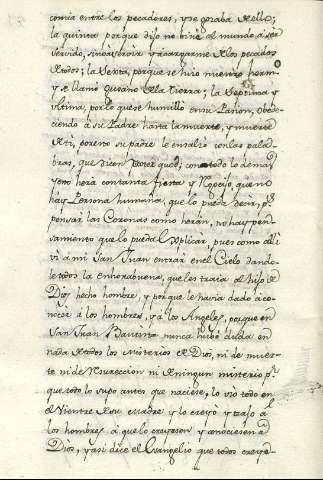 comia entre los pecadores, y se gozaba de ello;
la quinta porque dijo no vine al mundo a ser
servido, sino a servir y a cargarme de los pecados
de todos; la sexta, porque se hizo nuestro herm.º
y se llamo gusano de la tierra; la septima y
ultima, por lo que se humilló en su Pasion, obede-
ciendo a su Padre hasta la muerte, y muerte
de +, por eso su padre le ensalzó con las pala-
bras, que dicen propter quod; con todo lo demas,
y esto hera con tanta fiesta y regocijo, que no
hay Persona humana, que lo pueda decir, p.s
pensar las Coronas como herán, no hay pen-
samiento que lo pueda explicar, pues como alli
vi a mi San Juan entrar en el Cielo dando
le todos la enhorabuena, que les traia al hijo de
Dios hecho hombre, y porque le havia dado a co-
nocer a los hombres, y a los Angeles, porque en
San Juan Bautista nunca hubo duda en
nada de todos los misterios de Dios, ni de muer-
te ni de Resureccion ni de ningun misterio p.r
que todo lo supo antes que naciese, lo vio todo en
el Vientre de su madre y lo creyó y trajo a
los hombres a que lo creyesen y conociesen a
Dios, y asi dice el Evangelio que todos creye-